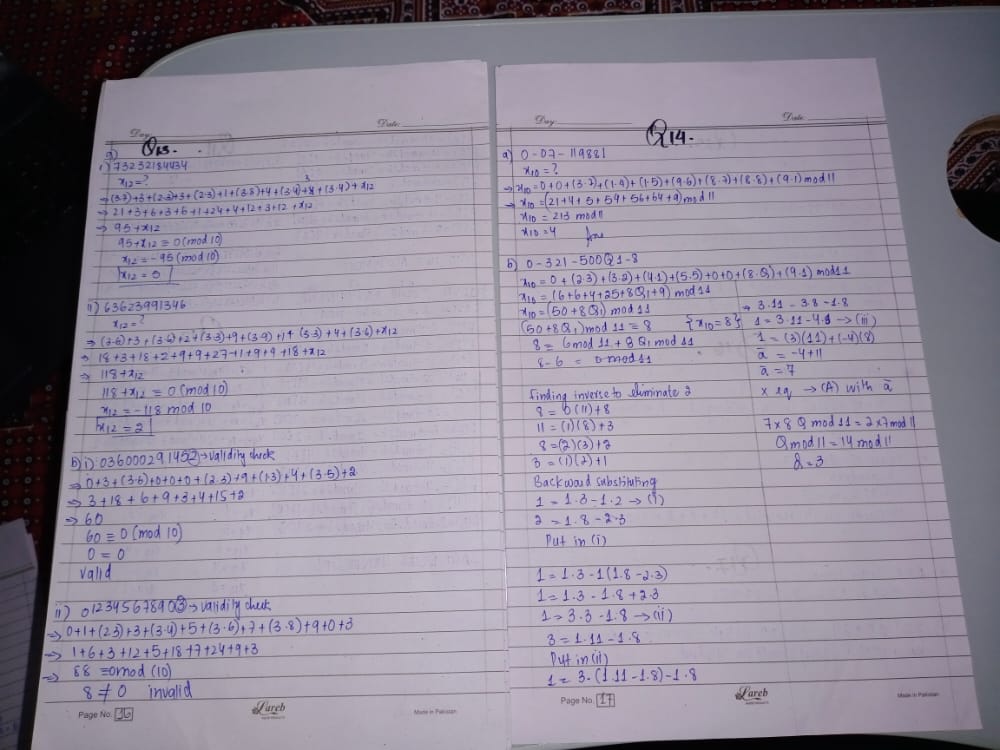 Day:
Date:
Q13.
a)
i) 73232184434
x12=?
⇒ (3.7)+3+(2.3)+3+(2.3)+1+(3.8)+4+(3.4)+3+(3.4)+x12
⇒ 21+3+6+3+6+1+24+4+12+3+12+x12
⇒ 95+x12
95+x12 ≡ 0(mod 10)
x12 = -95 (mod 10)
x12 = 0
ii) 63623991346
x12=?
⇒ (3.6)+3+(3.6)+2+(3.3)+9+(3.9)+1+(3.3)+4+(3.6)+x12
⇒ 18+3+18+2+9+9+27+1+9+9+18+x12
⇒ 118+x12
118+x12 = 0 (mod 10)
x12 = -118 mod 10
x12 = 2
b) i) 036000291452 → validity check
⇒ 0+3+(3.6)+0+0+0+(2.3)+9+(1.3)+4+(3.5)+2
⇒ 3+18+6+9+3+4+15+2
⇒ 60
60 ≡ 0 (mod 10)
0 = 0
valid
ii) 012345678903 → validity check
⇒ 0+1+(2.3)+3+(3.4)+5+(3.6)+7+(3.8)+9+0+3
⇒ 1+6+3+12+5+18+7+24+9+3
⇒ 88 ≡ 0 mod (10)
8 ≠ 0 invalid
Page No. 16
Lareb
Made in Pakistan
Day:
Date:
Q14.
a) 0-07-119881
x10=?
⇒ x10=0+0+(3.7)+(1.4)+(1.5)+(9.6)+(8.7)+(8.8)+(9.1) mod 11
⇒ x10=(21+4+5+54+56+64+9) mod 11
x10 = 213 mod 11
x10 = 4 Ans
b) 0-321-500Q1-8
x10 = 0+(2.3)+(3.2)+(4.1)+(5.5)+0+0+(8.Q)+(9.1) mod 11
x10 = (6+6+4+25+8Q+9) mod 11
x10 = (50+8Q) mod 11
(50+8Q) mod 11 = 8 {x10=8}
8 = 6 mod 11 + 8Q mod 11
8-6 = 0 mod 11
Finding inverse to eliminate 2
8 = 0(11)+8
11 = (1)(8)+3
8=(2)(3)+2
3 = (1)(2)+1
Backward substituting
1 = 1.3-1.2 → (i)
2 = 1.8-2.3
Put in (i)
1 = 1.3-1(1.8-2.3)
1 = 1.3-1.8+2.3
1 = 3.3-1.8 → (ii)
3 = 1.11-1.8
Put in (ii)
1 = 3-(1.11-1.8)-1.8
⇒ 3.11-3.8-1.8
1 = 3.11-4.8 → (iii)
1 = (3)(11)+(-4)(8)
ā = -4+11
ā = 7
x eq → (A) with ā
7x8 Q mod 11 = 2x7 mod 11
Q mod 11 = 14 mod 11
Q = 3
Page No. 17
Lareb
Made in Pakistan